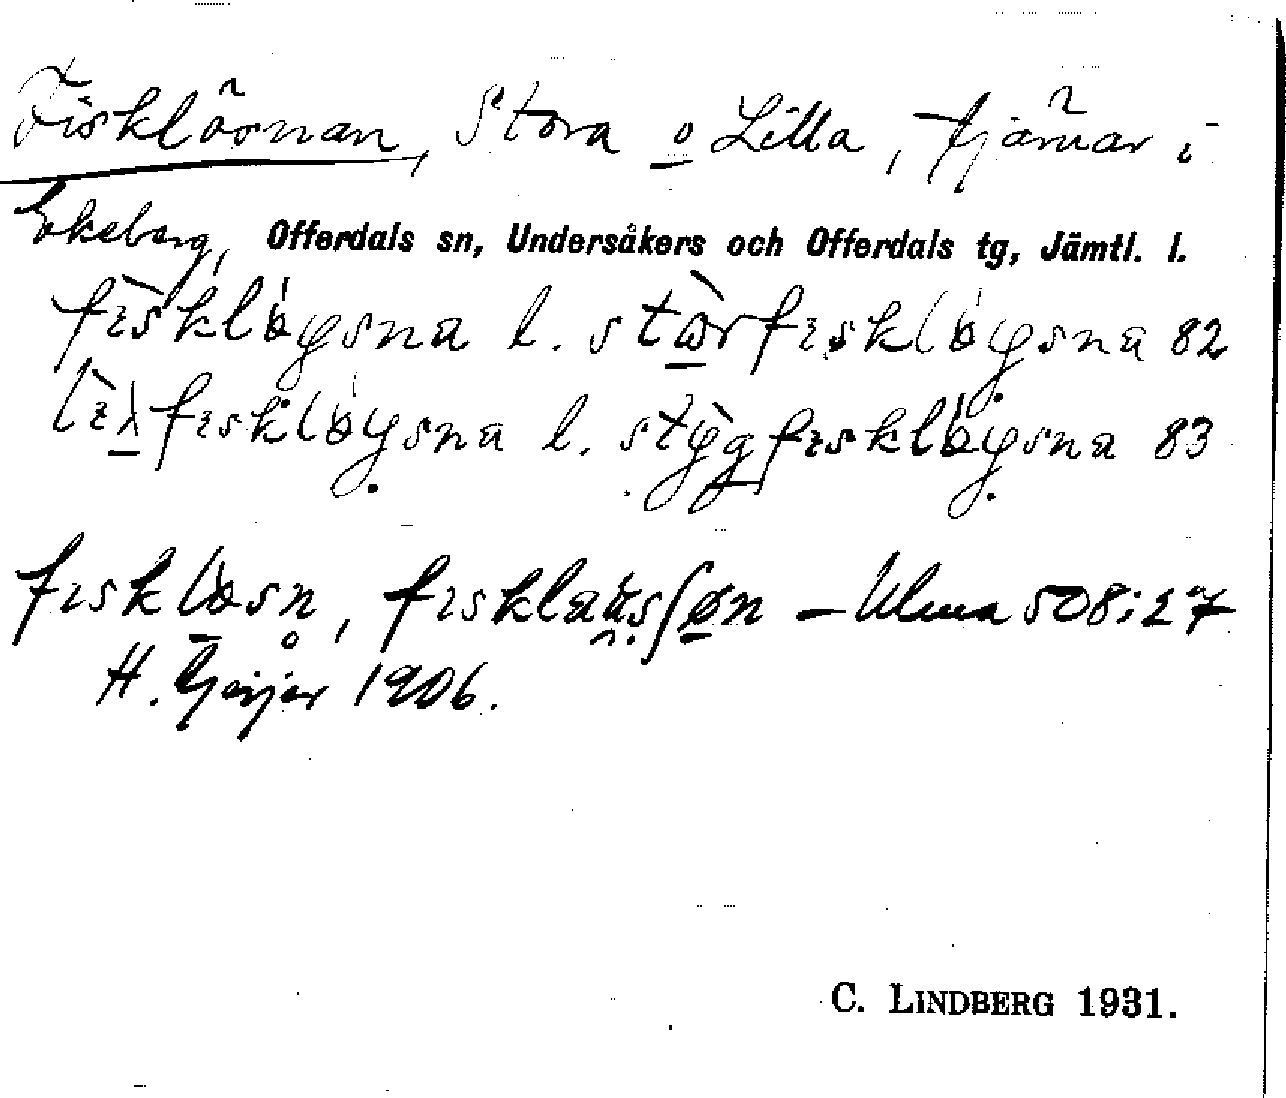 Fisklösnan, Stora o Lilla, tjärnar i
Ekeberg, Offerdals sn, Undersåkers och Offerdals tg, Jämtl. l.
fìsklöysna l. stòrfısklöysna 82
lìλfısklöysna l. stỳgfısklöysna 83
fısklösn, fısklau̯sʃøn – Ulma 508:27
H. Geijer 1906.
C. LINDBERG 1931.